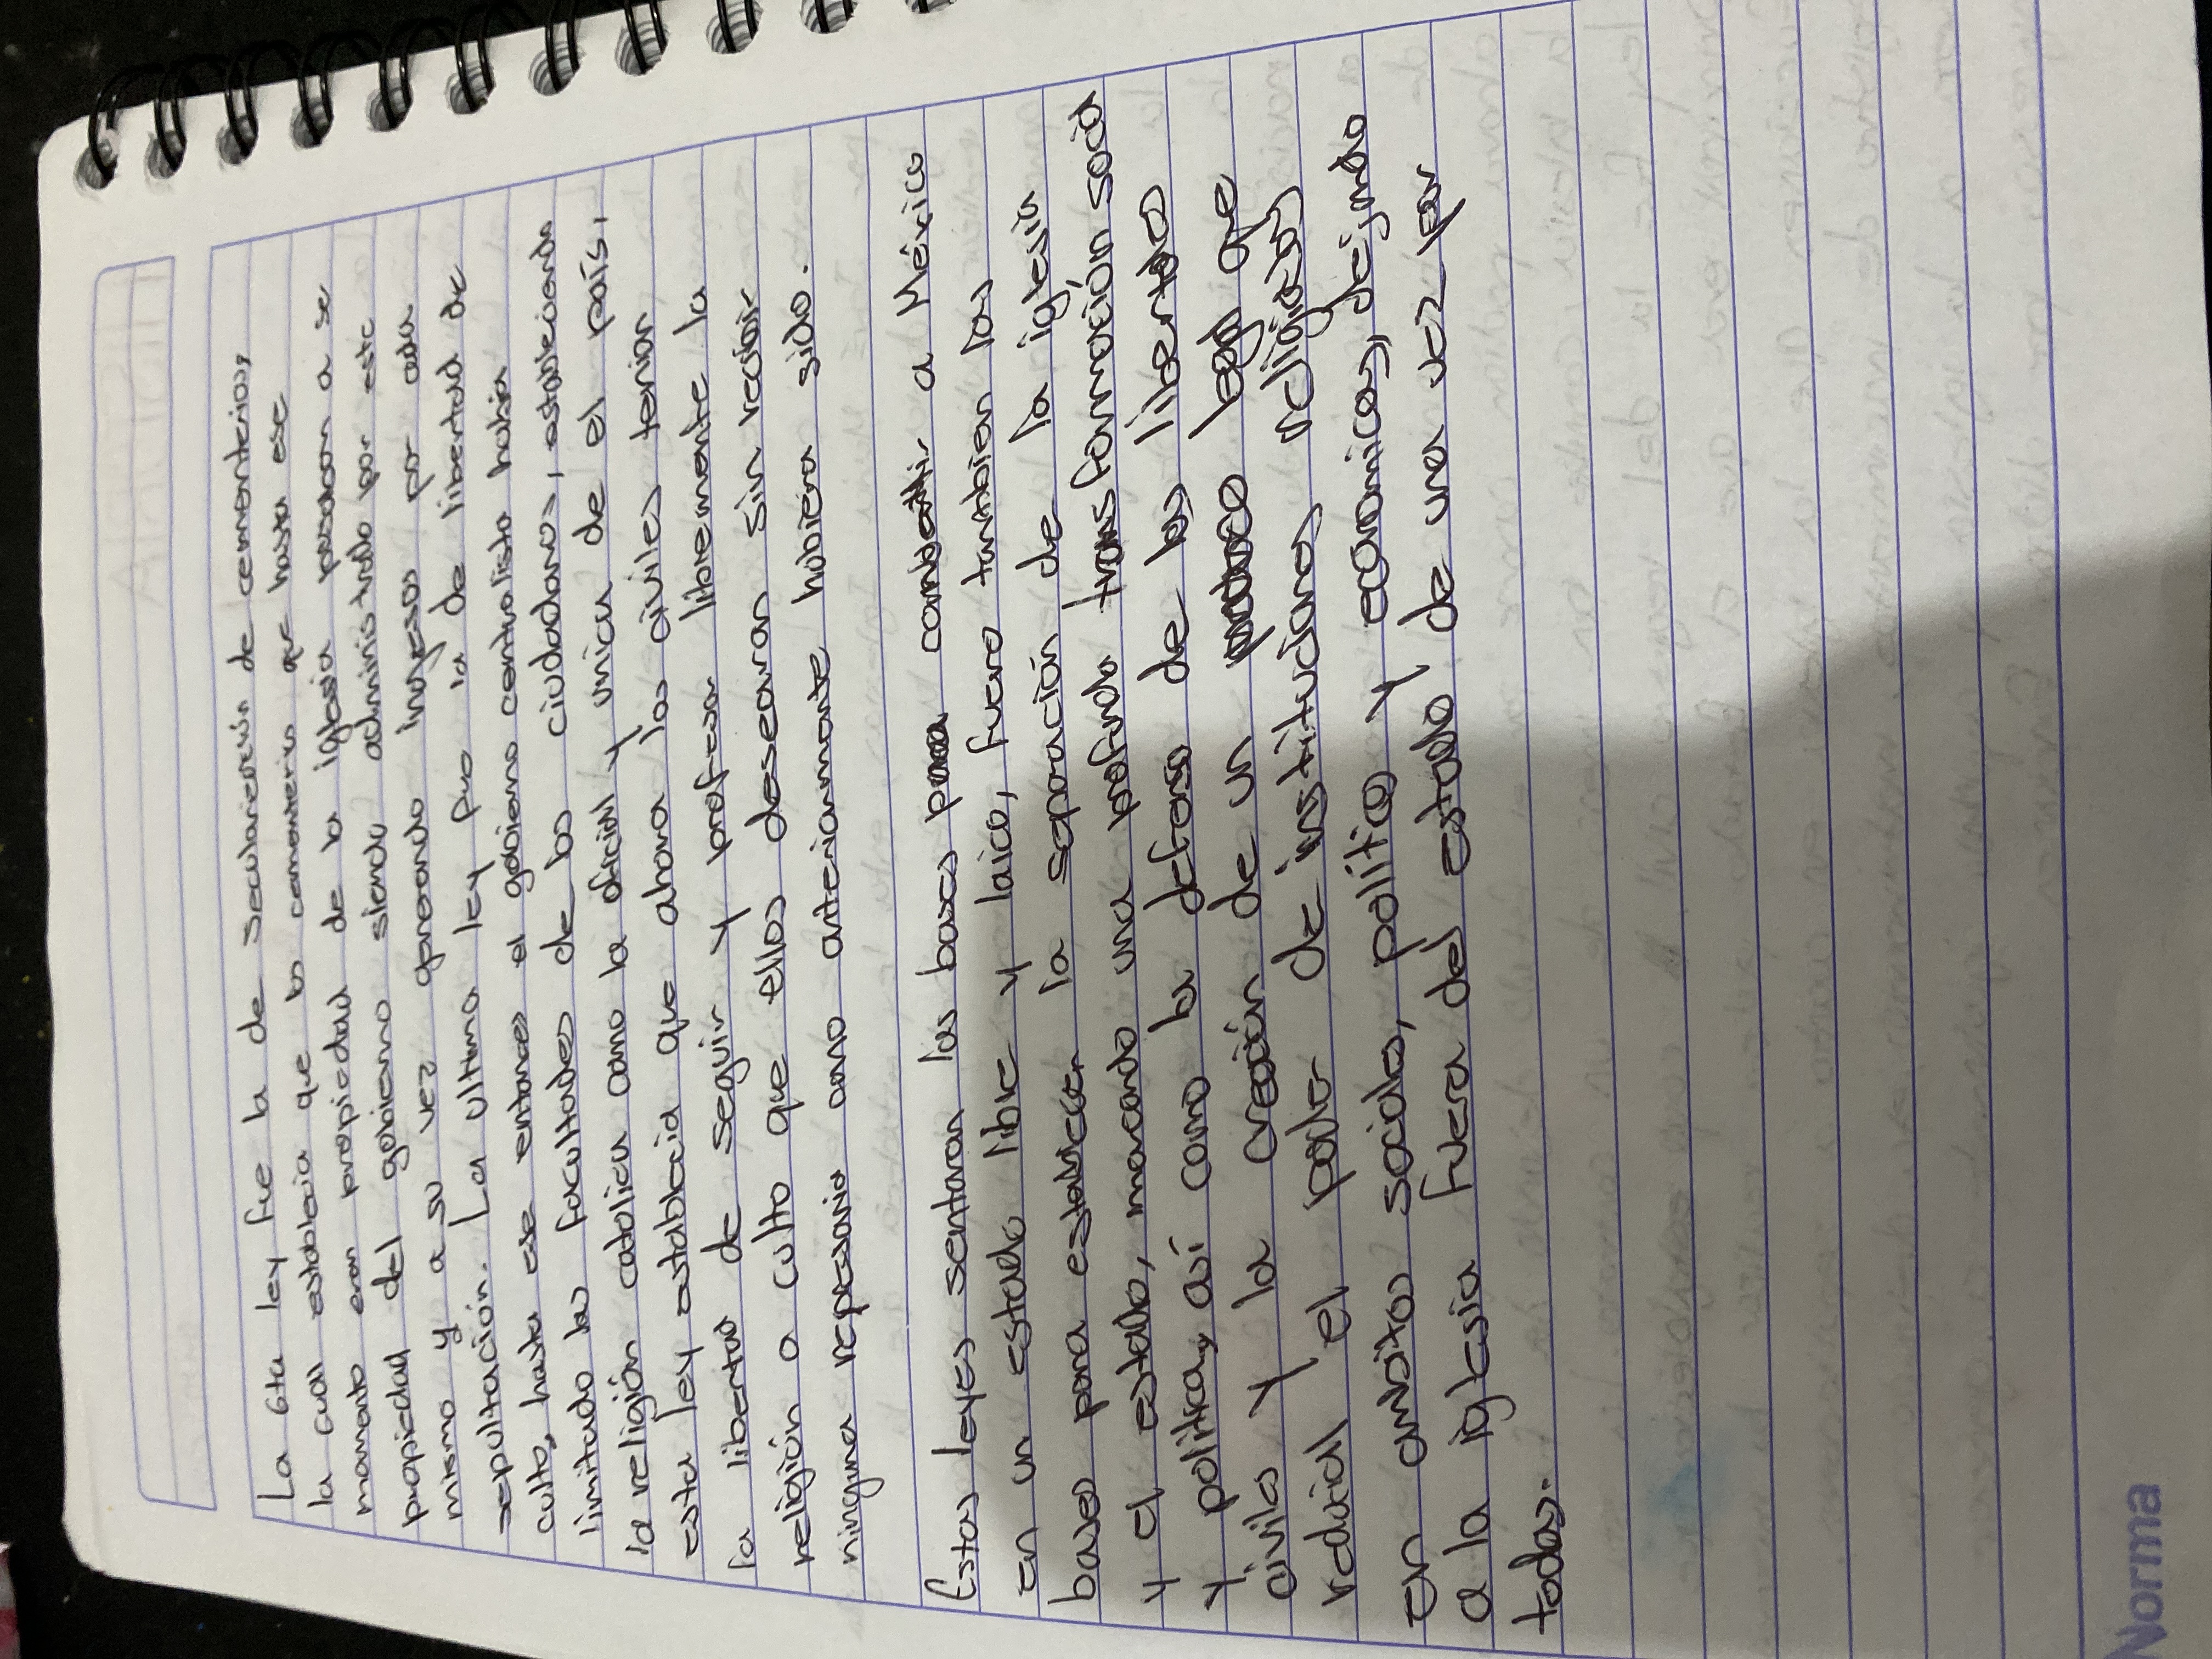 La 6ta ley fue la de secularización de cementerios,
la cual establecia que los cementerios que hasta ese
momento eran propiedad de la iglesia pasaban a se
propiedad del gobierno siendo administrado por este
mismo y a su vez generando ingresos por cada
sepultación. La ultima ley fue la de libertad de
culto, hasta ese entonces el gobierno centralista habia
limitado las facultades de los ciudadanos, estableciendo
la religión catolica como la oficial y unica de el país,
esta ley establecia que ahora los civiles tenian
la libertad de seguir y profesar libremente la
religión o culto que ellos desearan sin recibir
ninguna represaria como anteriormente hubiera sido.
Estas leyes sentaron las bases para convertir a México
en un estado libre y laico, fuero tambien las
bases para establecer la separación de la iglesia
y el estado, marcando una profunda transformación socia
y politica, así como la defensa de las libertades
civiles y la creación de un que
reducial el poder de instituciones religiosas
en ambitos sociales, politicos y economicos, dejando
a la iglesia fuera del estado de una vez por
todas.
Norma